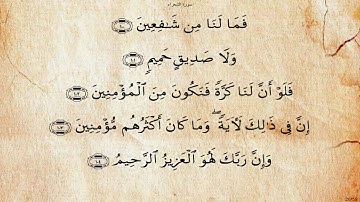 سورة الشعراء
فَمَا لَنَا مِن شَٰفِعِينَ ١٠٠
وَلَا صَدِيقٍ حَمِيمٍ ١٠١
فَلَوْ أَنَّ لَنَا كَرَّةً فَنَكُونَ مِنَ ٱلْمُؤْمِنِينَ ١٠٢
إِنَّ فِى ذَٰلِكَ لَـَٔايَةً ۖ وَمَا كَانَ أَكْثَرُهُم مُّؤْمِنِينَ ١٠٣
وَإِنَّ رَبَّكَ لَهُوَ ٱلْعَزِيزُ ٱلرَّحِيمُ ١٠٤